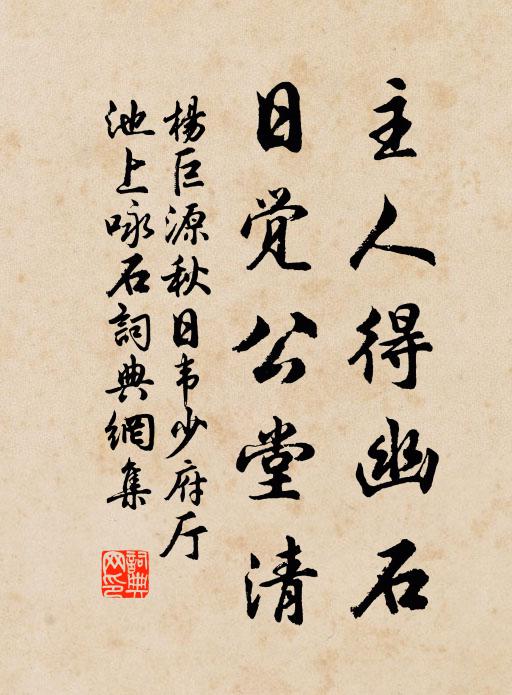 主人得幽石
日觉公堂清
楊巨源秋日韦少府厅
池上咏石詞典網集
詞典网印